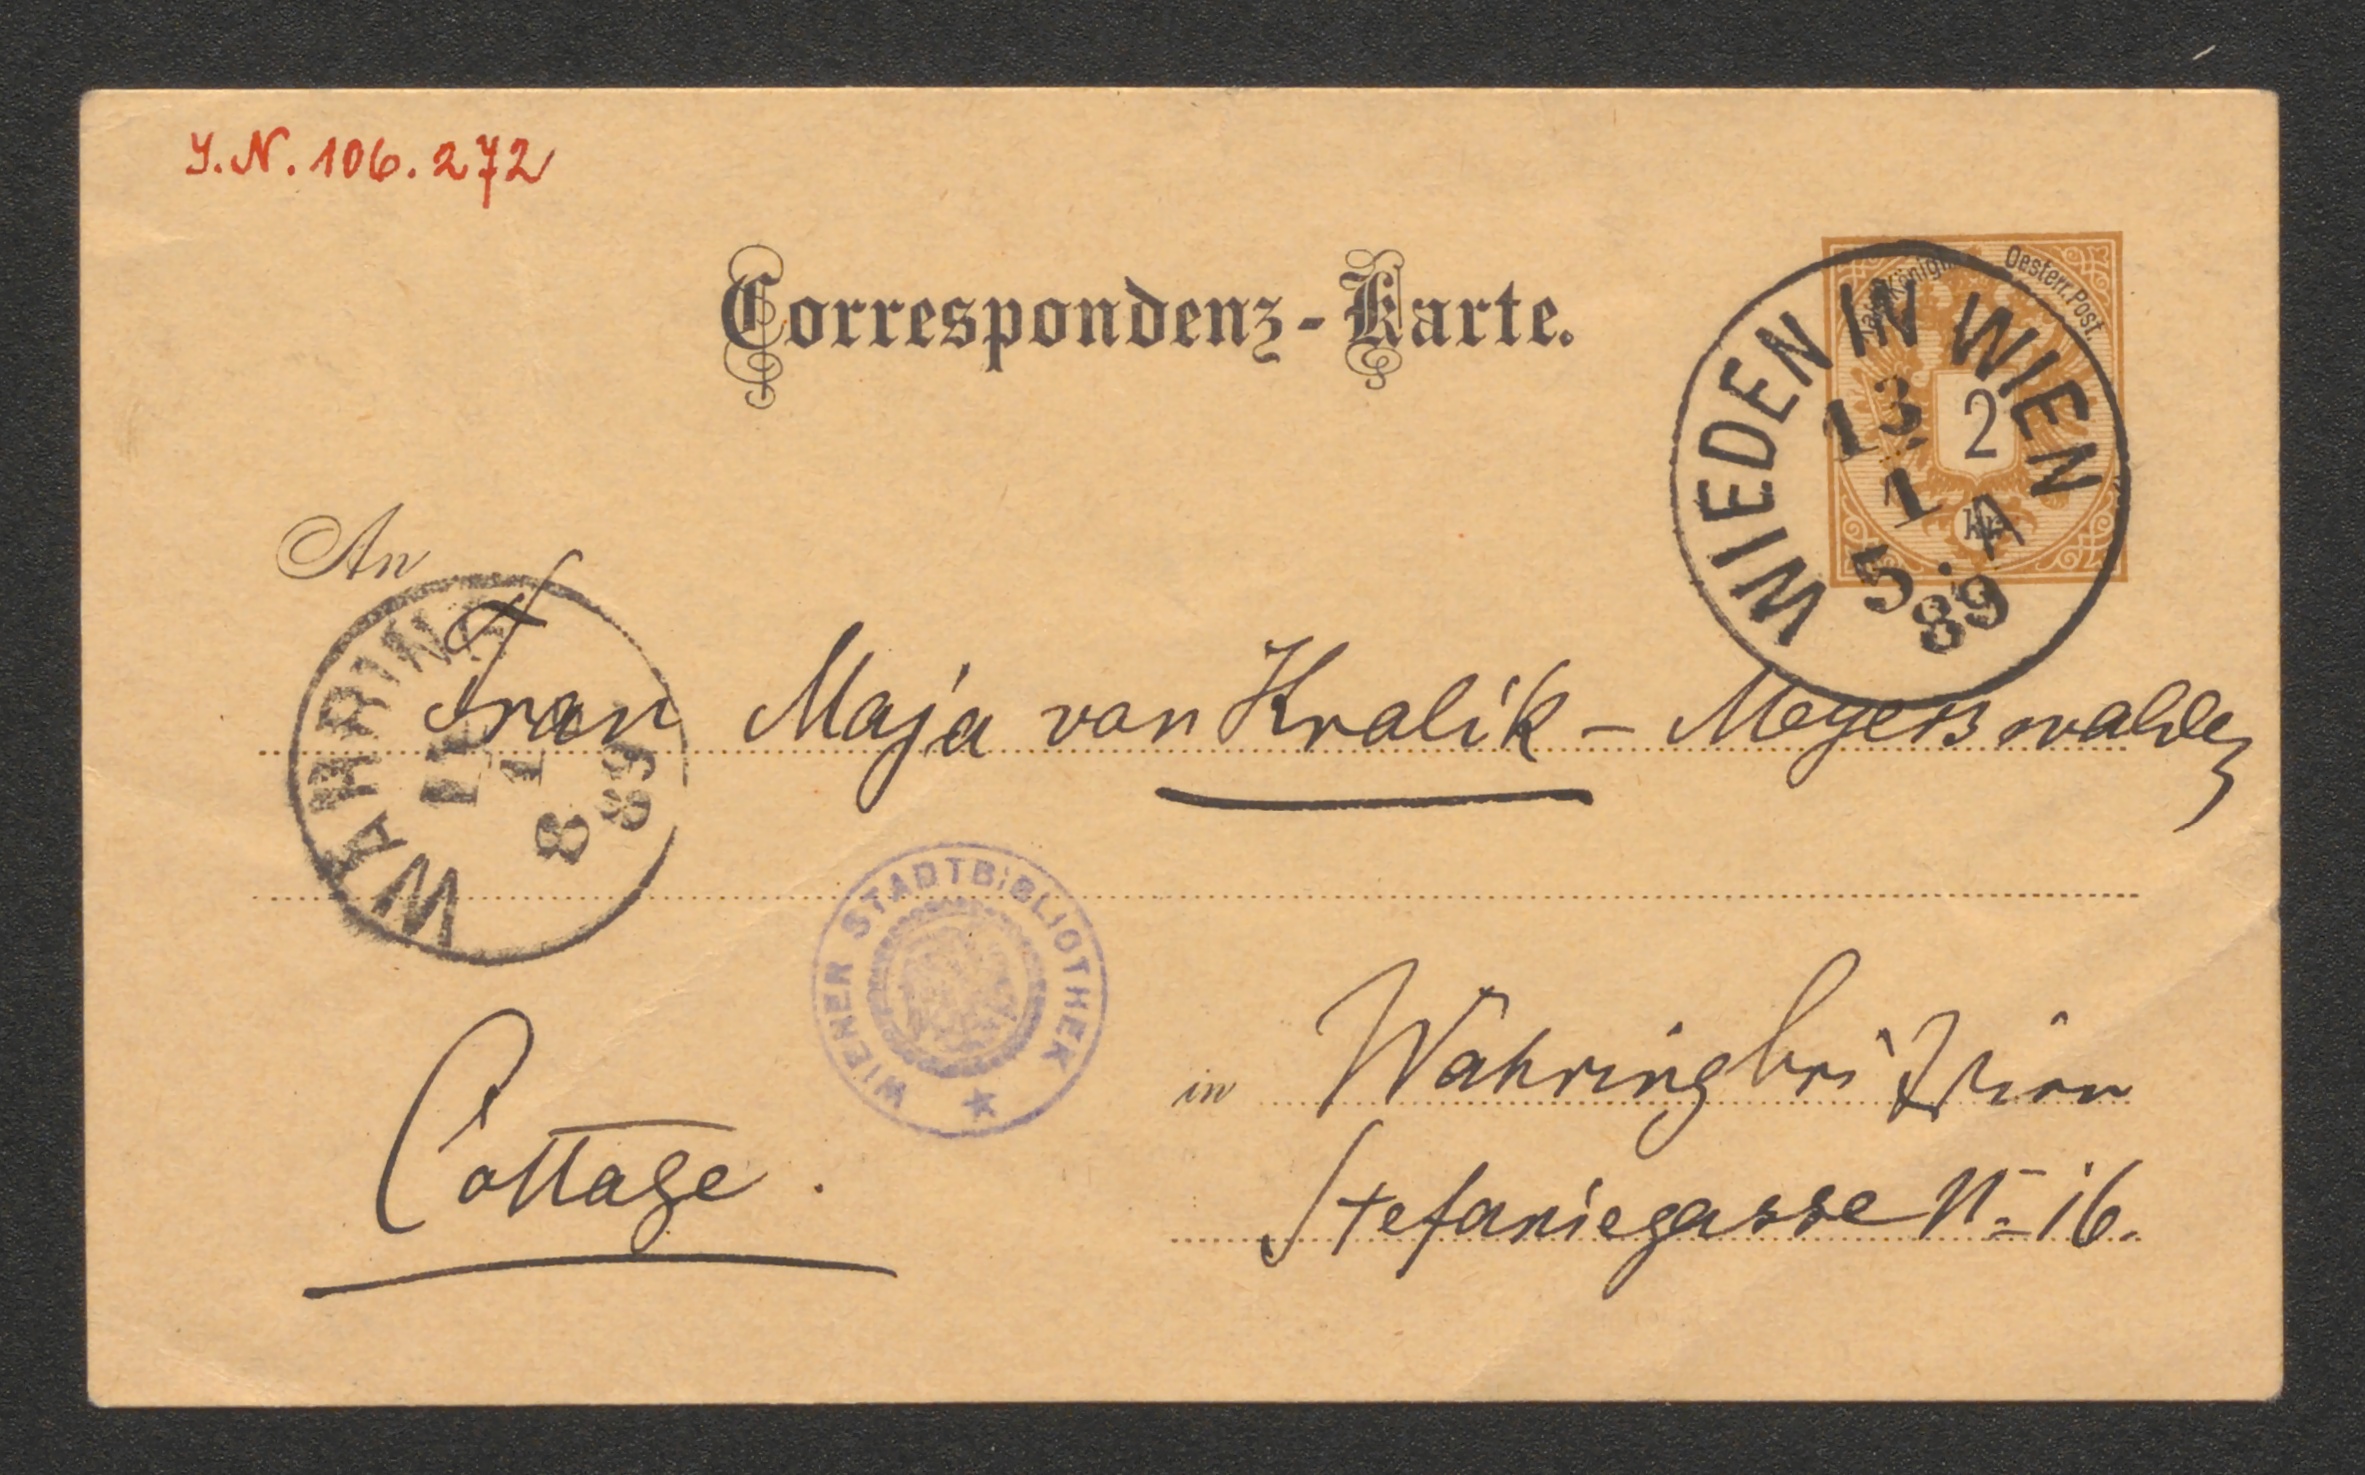 J.N. 106.272
Correspondenz-Karte.
Kaiserl. Königl. Oesterr. Post.
2
kr.
WIEDEN IN WIEN
13
1 A
5
89
An
WÄHRING
1
8
89
Frau Maja von Kralik – Meyerswalden
WIENER STADTBIBLIOTHEK
in Währing bei Wien
Cottage.
Stefaniegasse No 16.